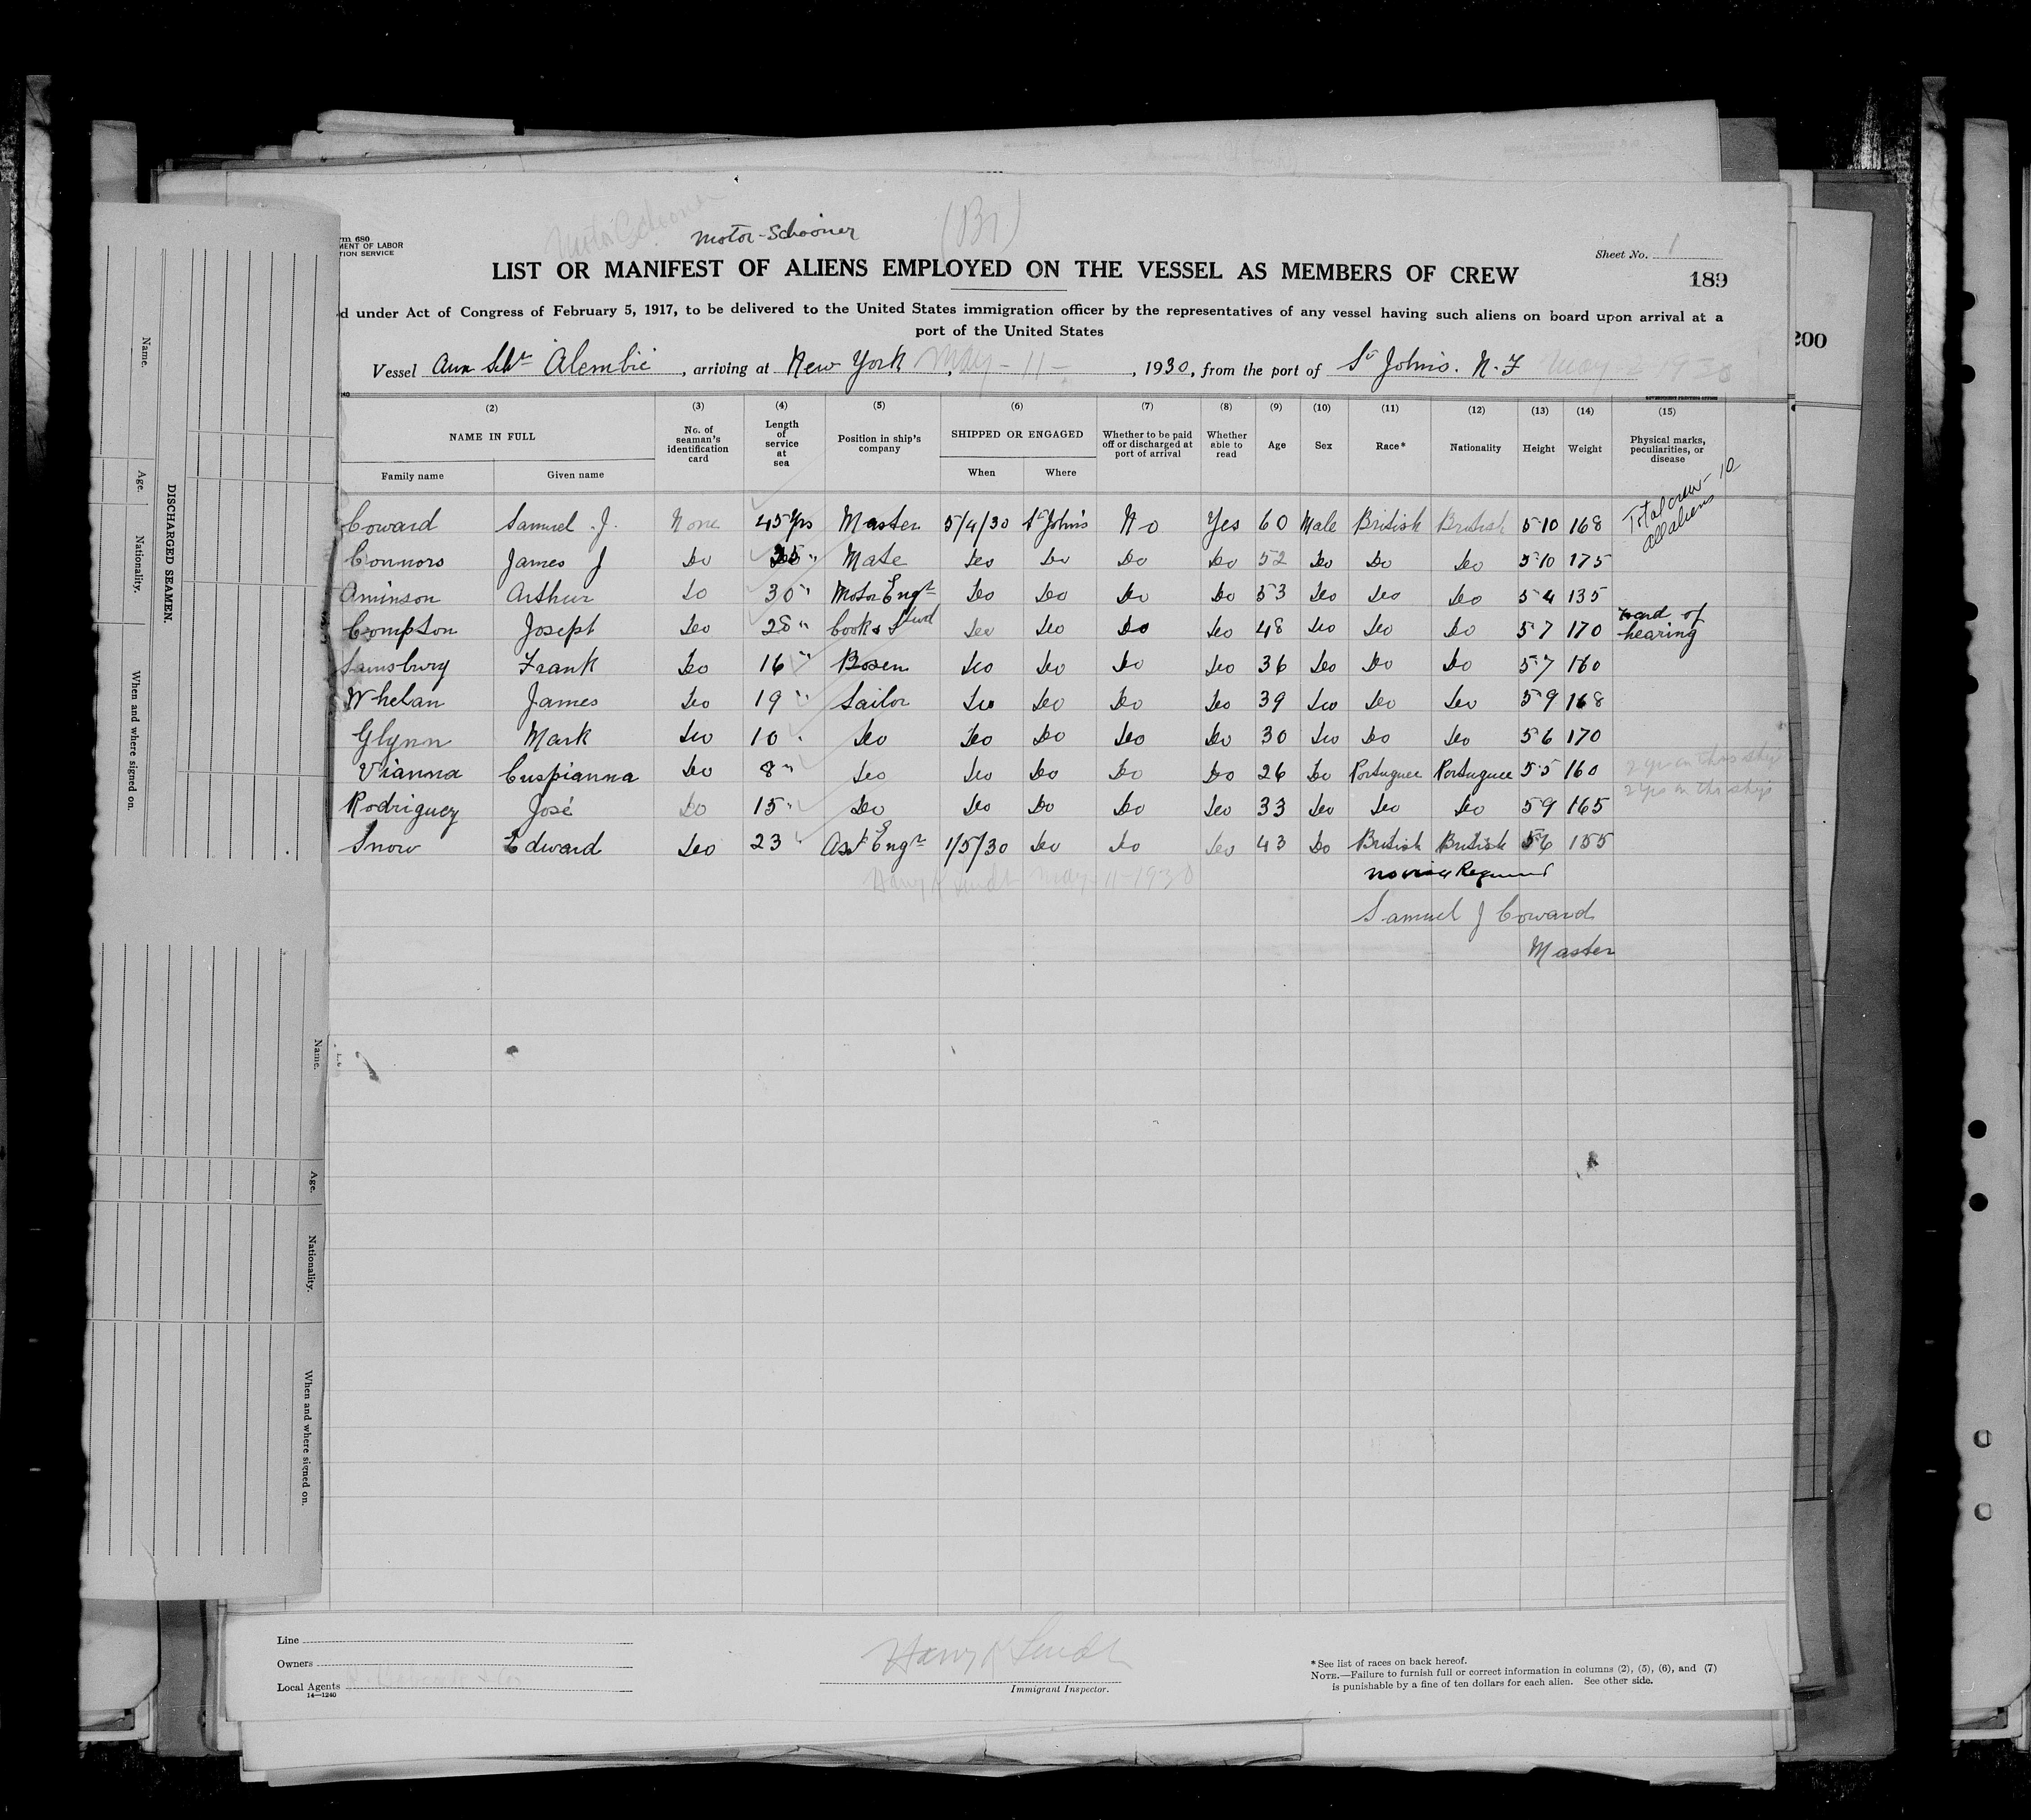 Motor Schooner
Motor-Schooner
(Br)
rm 680
MENT OF LABOR
TION SERVICE
Sheet No. 1
LIST OR MANIFEST OF ALIENS EMPLOYED ON THE VESSEL AS MEMBERS OF CREW
189
d under Act of Congress of February 5, 1917, to be delivered to the United States immigration officer by the representatives of any vessel having such aliens on board upon arrival at a
port of the United States
200
Vessel Aux Schr Alembic, arriving at New York May - 11 -, 1930, from the port of St Johns. N.F May 2 1930
GOVERNMENT PRINTING OFFICE
(2) (3) (4) (5) (6) (7) (8) (9) (10) (11) (12) (13) (14) (15)
NAME IN FULL No. of seaman's identification card Length of service at sea Position in ship's company SHIPPED OR ENGAGED Whether to be paid off or discharged at port of arrival Whether able to read Age Sex Race* Nationality Height Weight Physical marks, peculiarities, or disease
Family name Given name When Where
Total crew - 10
all aliens
Coward Samuel J. None 45 Yrs Master 5/4/30 St Johns No Yes 60 Male British British 5 10 168
Connors James J Do " Mate Do Do Do Do 52 Do Do Do 5 10 175
Aminson Arthur Do 30 " Motor Engr Do Do Do Do 53 Do Do Do 5 4 135
Compton Joseph Do 28 " Cook & Stwd Do Do Do Do 48 Do Do Do 5 7 170 Hard of hearing
Sainsbury Frank Do 16 " Bosen Do Do Do Do 36 Do Do Do 5 7 160
Whelan James Do 19 " Sailor Do Do Do Do 39 Do Do Do 5 9 168
Glynn Mark Do 10 " Do Do Do Do Do 30 Do Do Do 5 6 170
Vianna Cuspianna Do 8 " Do Do Do Do Do 26 Do Portuguee Portuguee 5 5 160 2 yrs on this ship
Rodriguez José Do 15 " Do Do Do Do Do 33 Do Do Do 5 9 165 2 yrs on this ship
Snow Edward Do 23 " Asst Engr 1/5/30 Do Do Do 43 Do British British 5 6 155
Harry K Lindt May - 11 - 1930
no visa Required
Samuel J Coward
Master
DISCHARGED SEAMEN.
Name.
Age.
Nationality.
When and where signed on.
Name.
Age.
Nationality.
When and where signed on.
Line
Owners
Local Agents
14—1240
Harry K Lindt
Immigrant Inspector.
* See list of races on back hereof.
NOTE.—Failure to furnish full or correct information in columns (2), (5), (6), and (7)
is punishable by a fine of ten dollars for each alien. See other side.